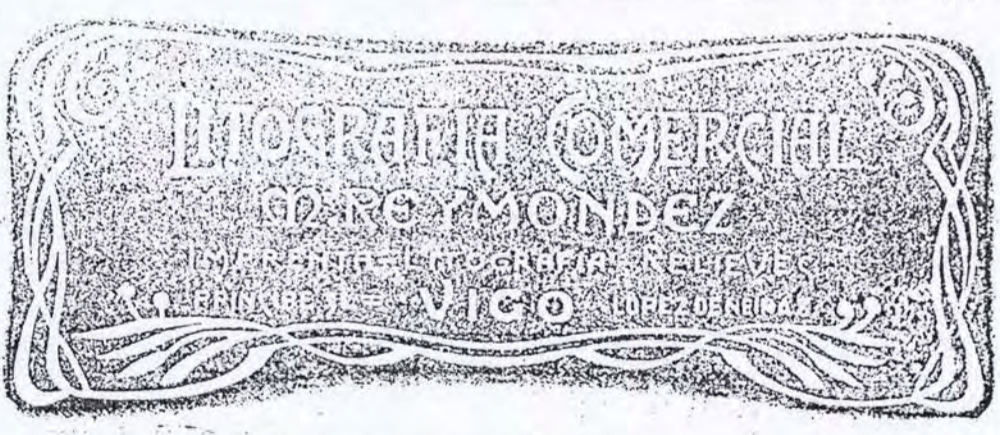 LITOGRAFIA COMERCIAL
M. REYMONDEZ
IMPRENTA-LITOGRAFIA RELIEVES
PRINCIPE VIGO LOPEZ DE NEIRA